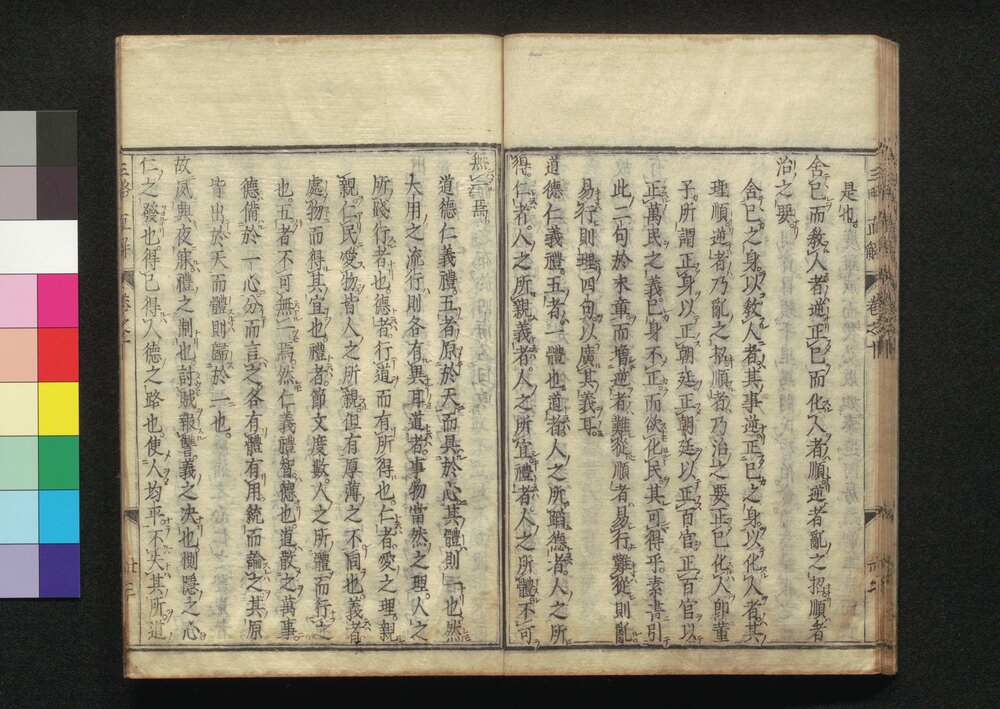 是也
舍己而教人者逆正己而化人者順逆者亂之招順者
治之要
舍己之身以教人者其事逆正己之身以化人者其
理順逆者乃亂之招順者乃治之要正己化人即董
子所謂正身以正朝廷正朝廷以正百官正百官以
正萬民之義已身不正而欲化民其可得乎素書引
此二句於末章而增逆者難從順者易行難從則亂
易行則理四句以廣其義耳
道德仁義禮五者一體也道者人之所蹈德者人之所
得仁者人之所親義者人之所宜禮者人之所體不可
無一焉
道德仁義禮五者原於天而具於心其體則一也然
大用之流行則各有異耳道者事物當然之理人之
所踐行者也德者行道而有所得也仁者愛之理親
親仁民愛物皆人之所親但有厚薄之不同也義者
處物而得其宜也禮者節文度數人之所體而行之
也五者不可無一焉然仁義禮智德也道散之萬事
德脩於一心分而言之各有體有用統而論之其原
皆出於天而體則歸於一也
故夙興夜寐禮之制也討賊報讐義之決也惻隱之心
仁之發也得己得人德之路也使人均平不失其所道
三略直解
卷之十
廿三